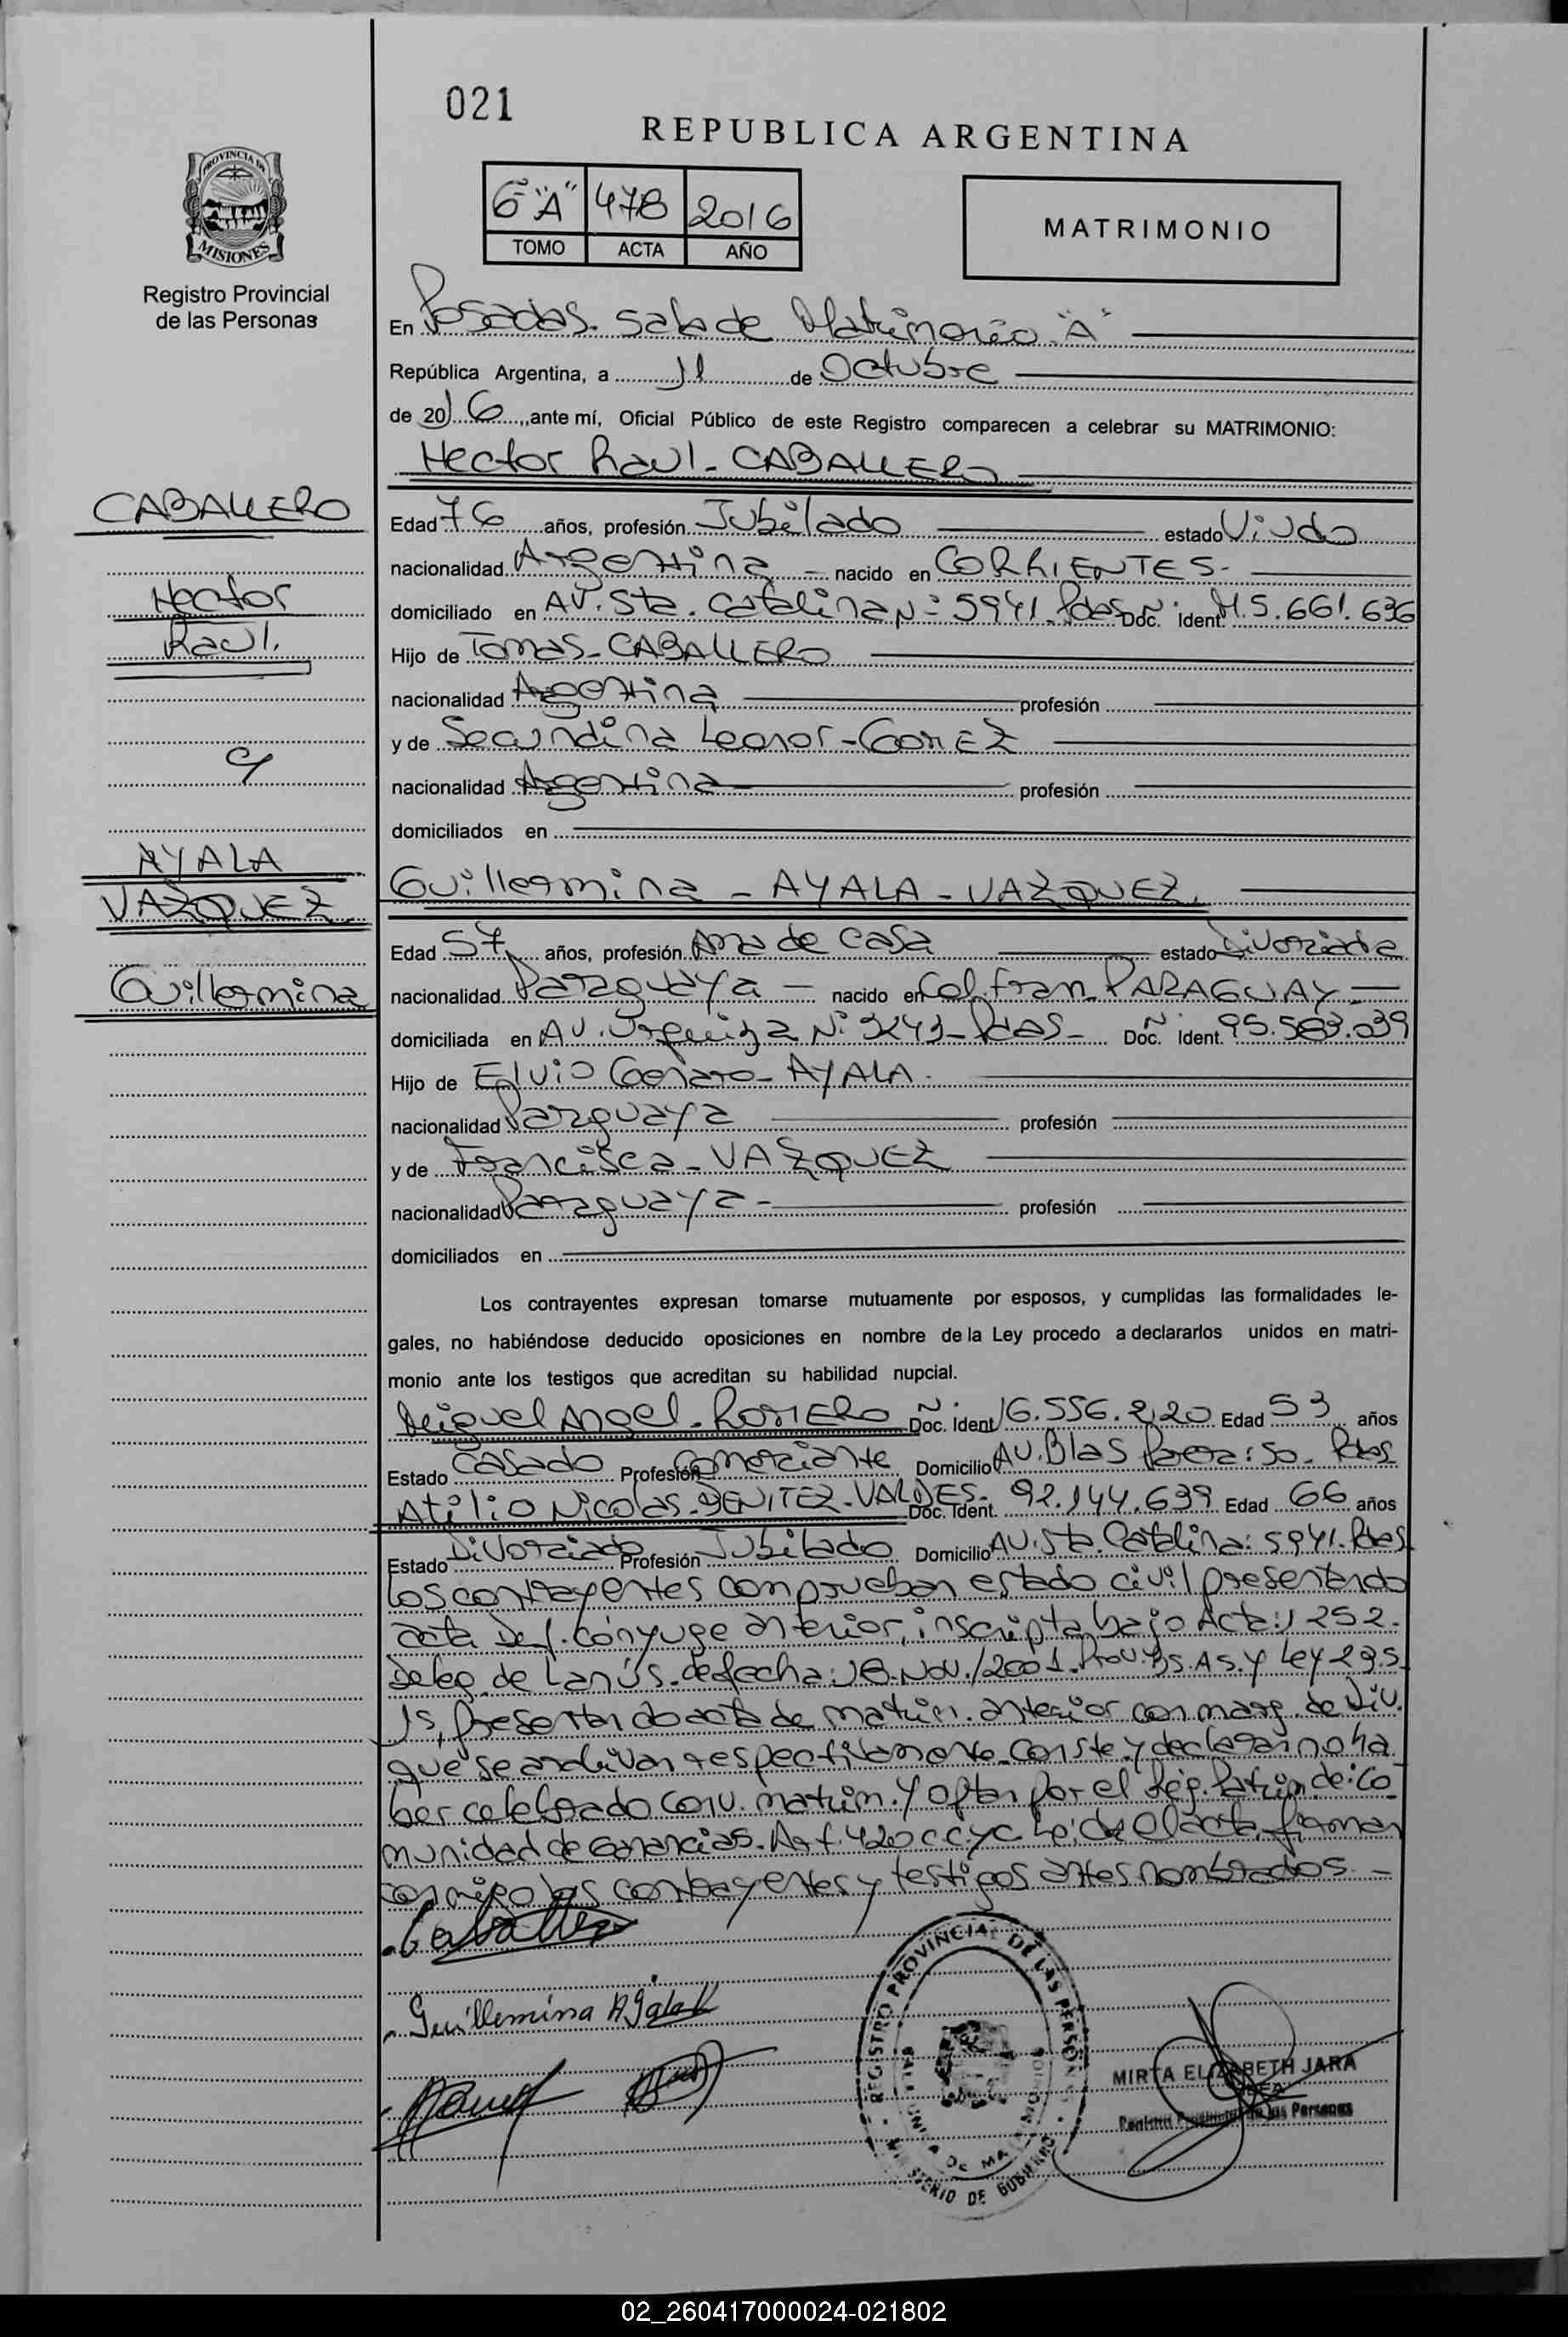 021
REPUBLICA ARGENTINA
6º "A" 478 2016
TOMO ACTA AÑO
MATRIMONIO
PROVINCIA DE
MISIONES
Registro Provincial
de las Personas
En Posadas. Sala de Matrimonio "A"
República Argentina, a 11 de Octubre
de 2016, ante mí, Oficial Público de este Registro comparecen a celebrar su MATRIMONIO:
Hector Raul - CABALLERO
CABALLERO
Hector
Raul.
c/
AYALA
VAZQUEZ.
Guillermina
Edad 76 años, profesión Jubilado estado Viudo
nacionalidad Argentina - nacido en CORRIENTES -
domiciliado en AV. Sta. Catalina Nº 5941. Pdas Doc. Ident. M 5.661.636
Hijo de Tomas - CABALLERO
nacionalidad Argentina profesión
y de Secundina Leonor - GOMEZ
nacionalidad Argentina profesión
domiciliados en
Guillermina - AYALA - VAZQUEZ.
Edad 57 años, profesión Ama de Casa estado Divorciada
nacionalidad Paraguaya - nacido en Cel. Fran. PARAGUAY -
domiciliada en AV. Urquiza Nº 3243 - Pdas - Doc. Ident. 95.583.039
Hijo de Elvio Genaro - AYALA.
nacionalidad Paraguaya profesión
y de Francisca - VAZQUEZ
nacionalidad Paraguaya - profesión
domiciliados en
Los contrayentes expresan tomarse mutuamente por esposos, y cumplidas las formalidades le-
gales, no habiéndose deducido oposiciones en nombre de la Ley procedo a declararlos unidos en matri-
monio ante los testigos que acreditan su habilidad nupcial.
Miguel Angel - ROMERO Doc. Ident. 16.556.220 Edad 53 años
Estado Casado Profesión Comerciante Domicilio AV. Blas Parera: 50. Pdas
Atilio Nicolas - BENITEZ - VALDES - Doc. Ident. 92.144.639 Edad 66 años
Estado Divorciado Profesión Jubilado Domicilio AV. Sta. Catalina: 5941. Pdas
Los contrayentes comprueban estado civil presentando
acta Def. cónyuge anterior, inscripta bajo Acta: 1252.
Deleg. de Lanús. de fecha: 18. Nov./2001. Prov. Bs. As. y Ley 295
Js, presentando acta de matrim. anterior con marg. de Div.
que se archivan respectivamente. Conste y declaran no ha
ber celebrado conv. matrim. y optan por el Rég. Patrim. de: Co
munidad de Ganancias. Art. 420 C.C. y C. Leída el acta, firman
conmigo los contrayentes y testigos antes nombrados. -
Caballero
Guillermina Ayala V
REGISTRO PROVINCIAL DE LAS PERSONAS
MINISTERIO DE GOBIERNO
MIRTA ELIZABETH JARA
JEFA
Registro Provincial de las Personas
02_260417000024-021802